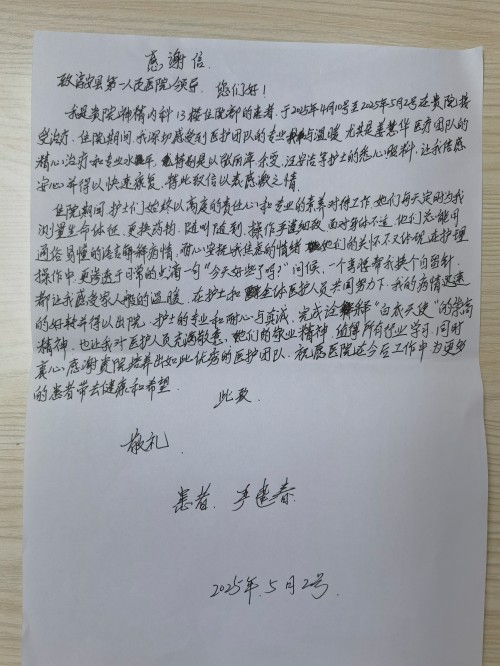 感谢信
致富民县第一人民医院领导、您们好！
我是贵院神精内科13楼住院部的患者，于2025年4月10号至2025年5月2号在贵院接
受治疗。住院期间，我深切感受到医护团队的专业与温暖，尤其是姜慧华医疗团队的
精心治疗和专业水平，特别是以张丽萍、安洁等护士的悉心照料，让我倍感
安心并得以快速康复，特此致信以表感激之情。
住院期间，护士们始终以高度的责任心和专业的素养对待工作，她们每天定时为我
测量生命体征、更换药物、随叫随到，操作手法细致，面对身体不适，他们总能用
通俗易懂的语言解释病情，耐心安抚我焦虑的情绪，她们的关怀不又体现在护理
操作中，更渗透于日常的点滴一句“今天好些了吗？”问候，一个喜怪帮我换个留置针，
都让我感受家人般的温暖，在护士和全体医护人员共同努力下，我的病情迅速
的好转并得以出院，护士的专业和耐心与真诚，完成诠释“白衣天使”的崇高
精神，也让我对医护人员充满敬意，她们的敬业精神，值得所有行业学习，同时
衷心感谢贵院培养出如此优秀的医护团队，祝愿医院在今后工作中为更多
的患者带去健康和希望。
此致
敬礼
患者、李建春
2025年.5月2号.